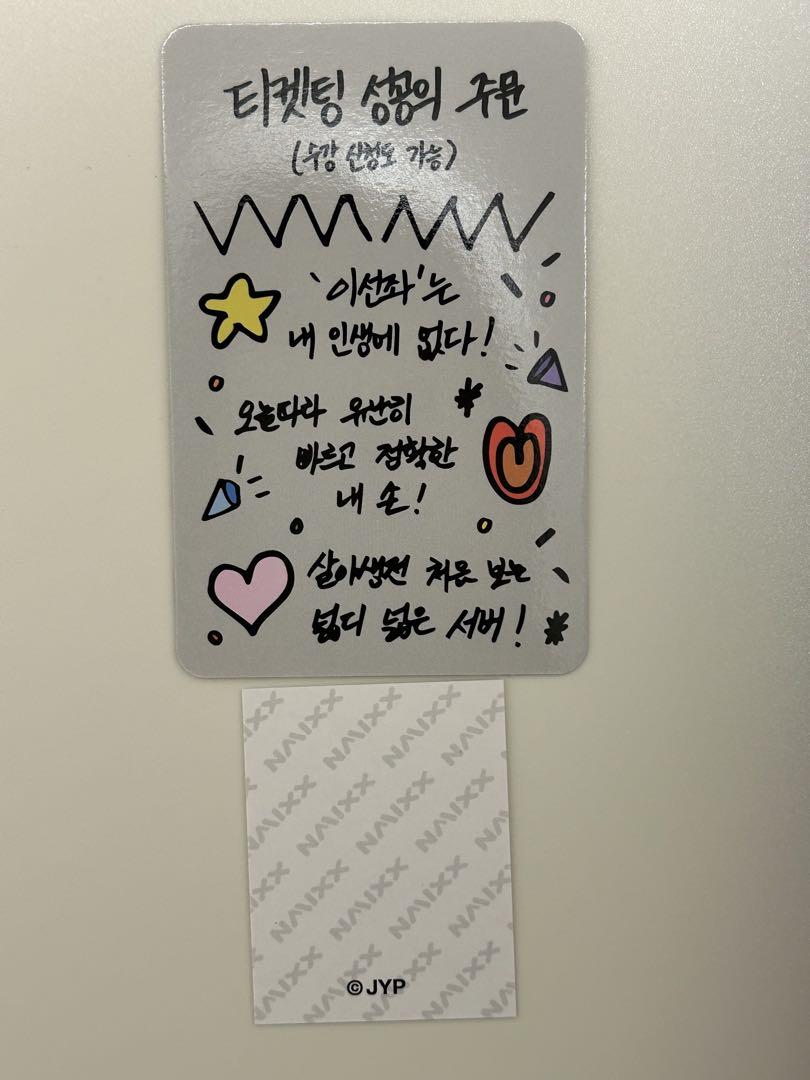 티켓팅 성공의 주문
(수강 신청도 가능)
'이선좌'는
내 인생에 없다!
오늘따라 유난히
빠르고 정확한
내 손!
살아생전 처음 보는
넓디 넓은 서버!
NMIXX NMIXX NMIXX
NMIXX NMIXX NMIXX
NMIXX NMIXX NMIXX
NMIXX NMIXX NMIXX
©JYP